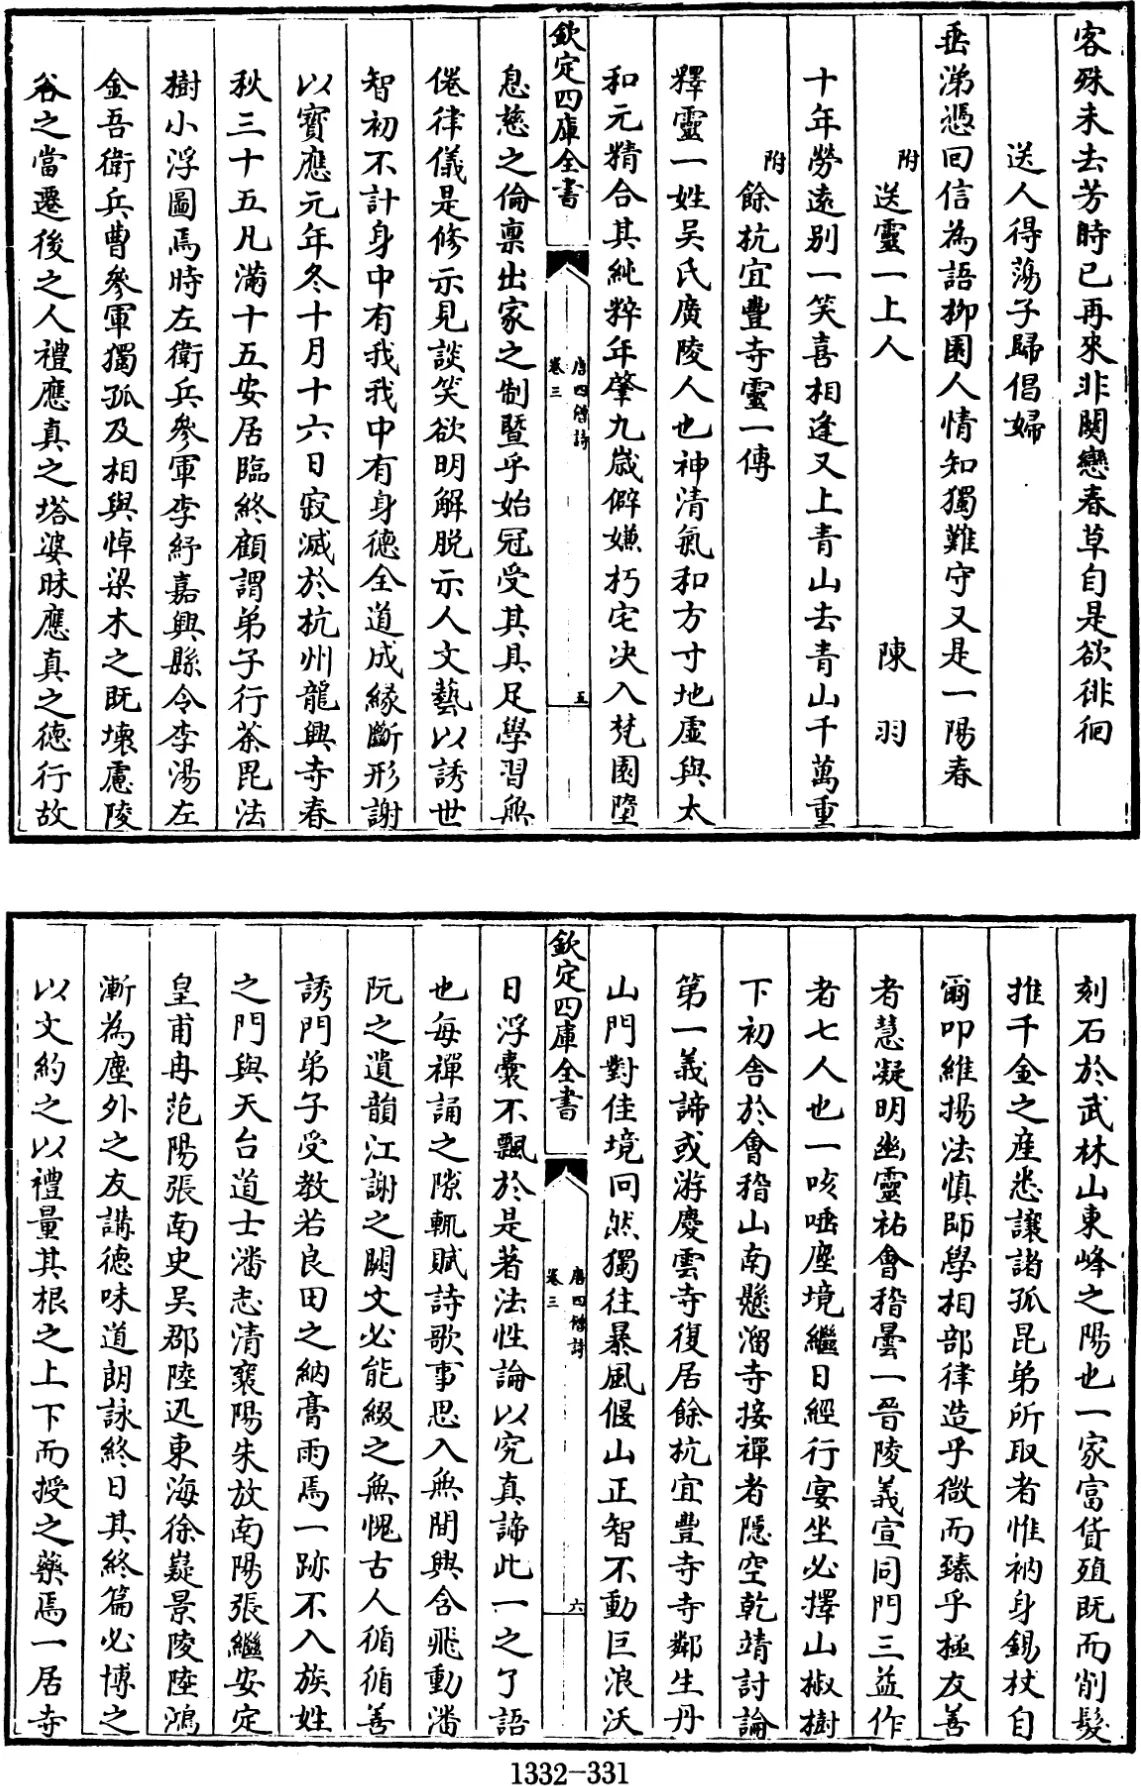 客殊未去芳時已再來非關戀春草自是欲徘徊
送人得蕩子歸倡婦
垂涕憑回信為語柳園人情知獨難守又是一陽春
附送靈一上人　陳羽
十年勞遠別一笑喜相逢又上青山去青山千萬重
附餘杭宜豐寺靈一傳
釋靈一姓吳氏廣陵人也神清氣和方寸地虛與太
和元精合其純粹年肇九歲僻嫌朽宅決入梵園墮
欽定四庫全書
唐四僧詩
卷三
五
息慈之倫稟出家之制暨乎始冠受其具足學習無
倦律儀是修示見談笑欲明解脱示人文藝以誘世
智初不計身中有我我中有身德全道成緣斷形謝
以寳應元年冬十月十六日寂滅於杭州龍興寺春
秋三十五凡滿十五安居臨終顧謂弟子行茶毘法
樹小浮圖焉時左衛兵參軍李紓嘉興縣令李湯左
金吾衛兵曹參軍獨孤及相與悼梁木之既壊慮陵
谷之當遷後之人禮應真之塔婆昧應真之徳行故
刻石於武林山東峰之陽也一家富貨殖既而削髮
推千金之産悉讓諸孤昆弟所取者惟衲身錫杖自
爾叩維揚法慎師學相部律造乎微而臻乎極友善
者慧凝明幽靈祐會稽曇一晉陵義宣同門三益作
者七人也一咳唾塵境繼日經行宴坐必擇山椒樹
下初舍於會稽山南懸溜寺接禪者隱空乾靖討論
第一義諦或游慶雲寺復居餘杭宜豐寺寺鄰生丹
山門對佳境囘然獨往暴風偃山正智不動巨浪沃
欽定四庫全書
唐四僧詩
卷三
六
日浮囊不飄於是著法性論以究真諦此一之了語
也每禪誦之隙輒賦詩歌事思入無間興含飛動潘
阮之遺韻江謝之闕文必能綴之無愧古人循循善
誘門弟子受教若良田之納膏雨焉一跡不入族姓
之門與天台道士潘志清襄陽朱放南陽張繼安定
皇甫冉范陽張南史吳郡陸迅東海徐嶷景陵陸鴻
漸為塵外之友講徳味道朗詠終日其終篇必博之
以文約之以禮量其根之上下而授之藥焉一居寺
1332-331